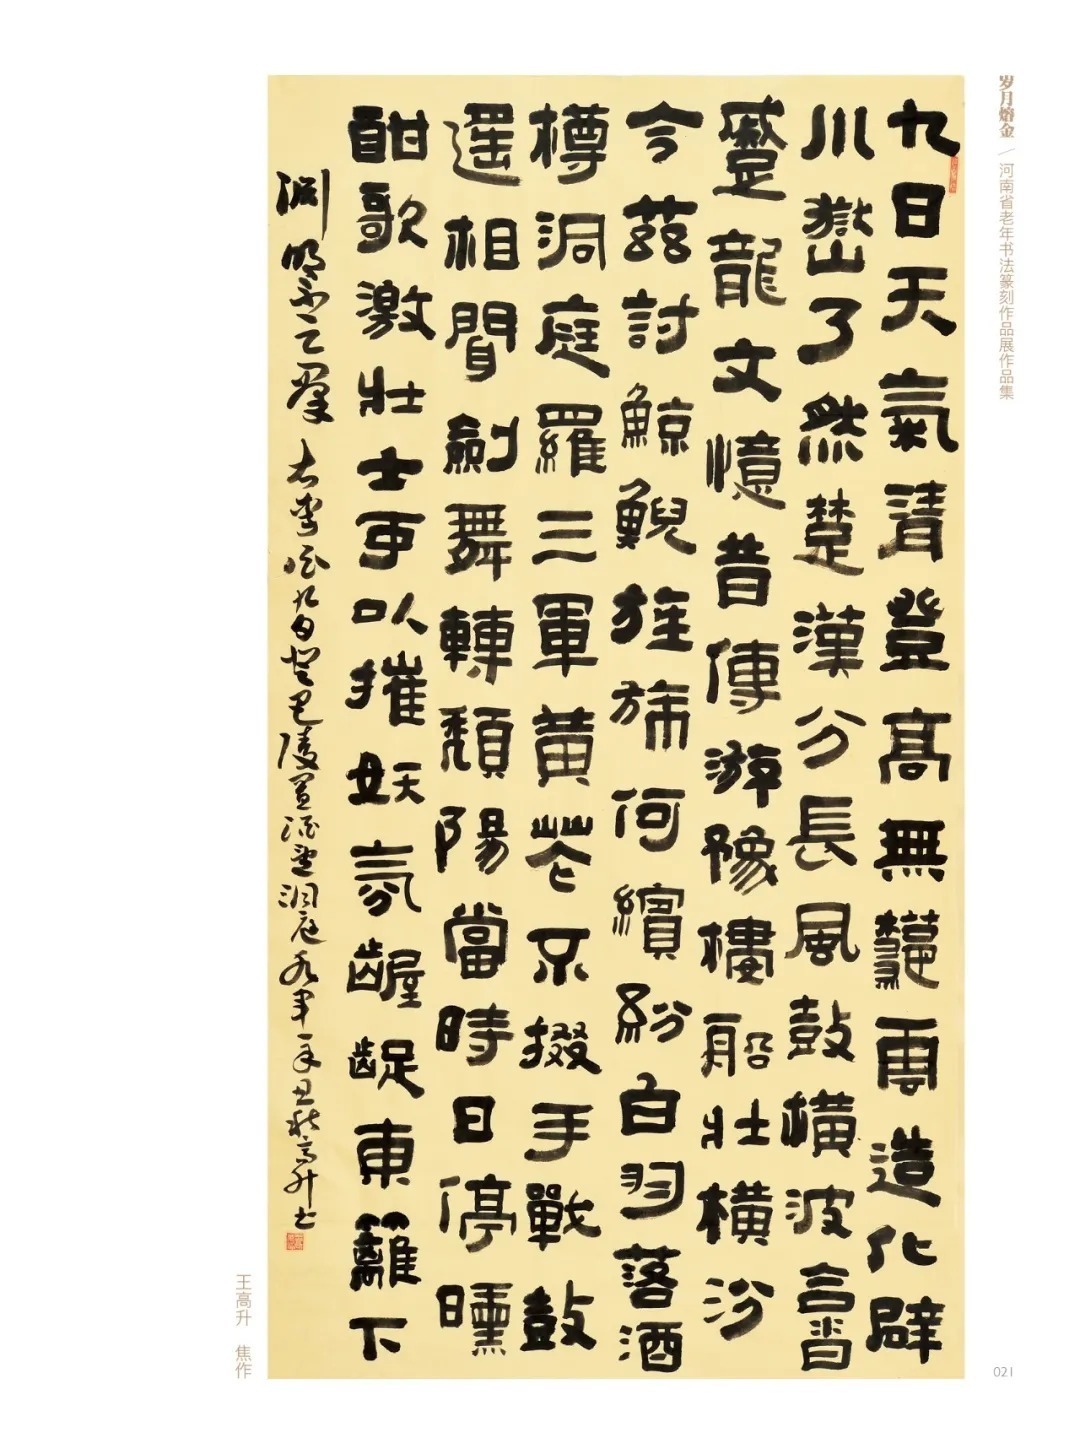 岁月熔金/河南省老年书法篆刻作品展作品集
九日天氣清登高無龝雲造化辟
川嶽了然楚漢分長風鼓橫波合沓
蹙龍文憶昔傳游豫樓船壯橫汾
今茲討鯨鯢旌旆何繽紛白羽落酒
樽洞庭羅三軍黃花不掇手戰鼓
遥相聞劍舞轉頹陽當時日停曛
酣歌激壯士可以摧妖氛齷齪東籬下
渊明不足羣 右李白九日登巴陵置酒望洞庭水軍 辛丑秋高升书
王高升 焦作
021